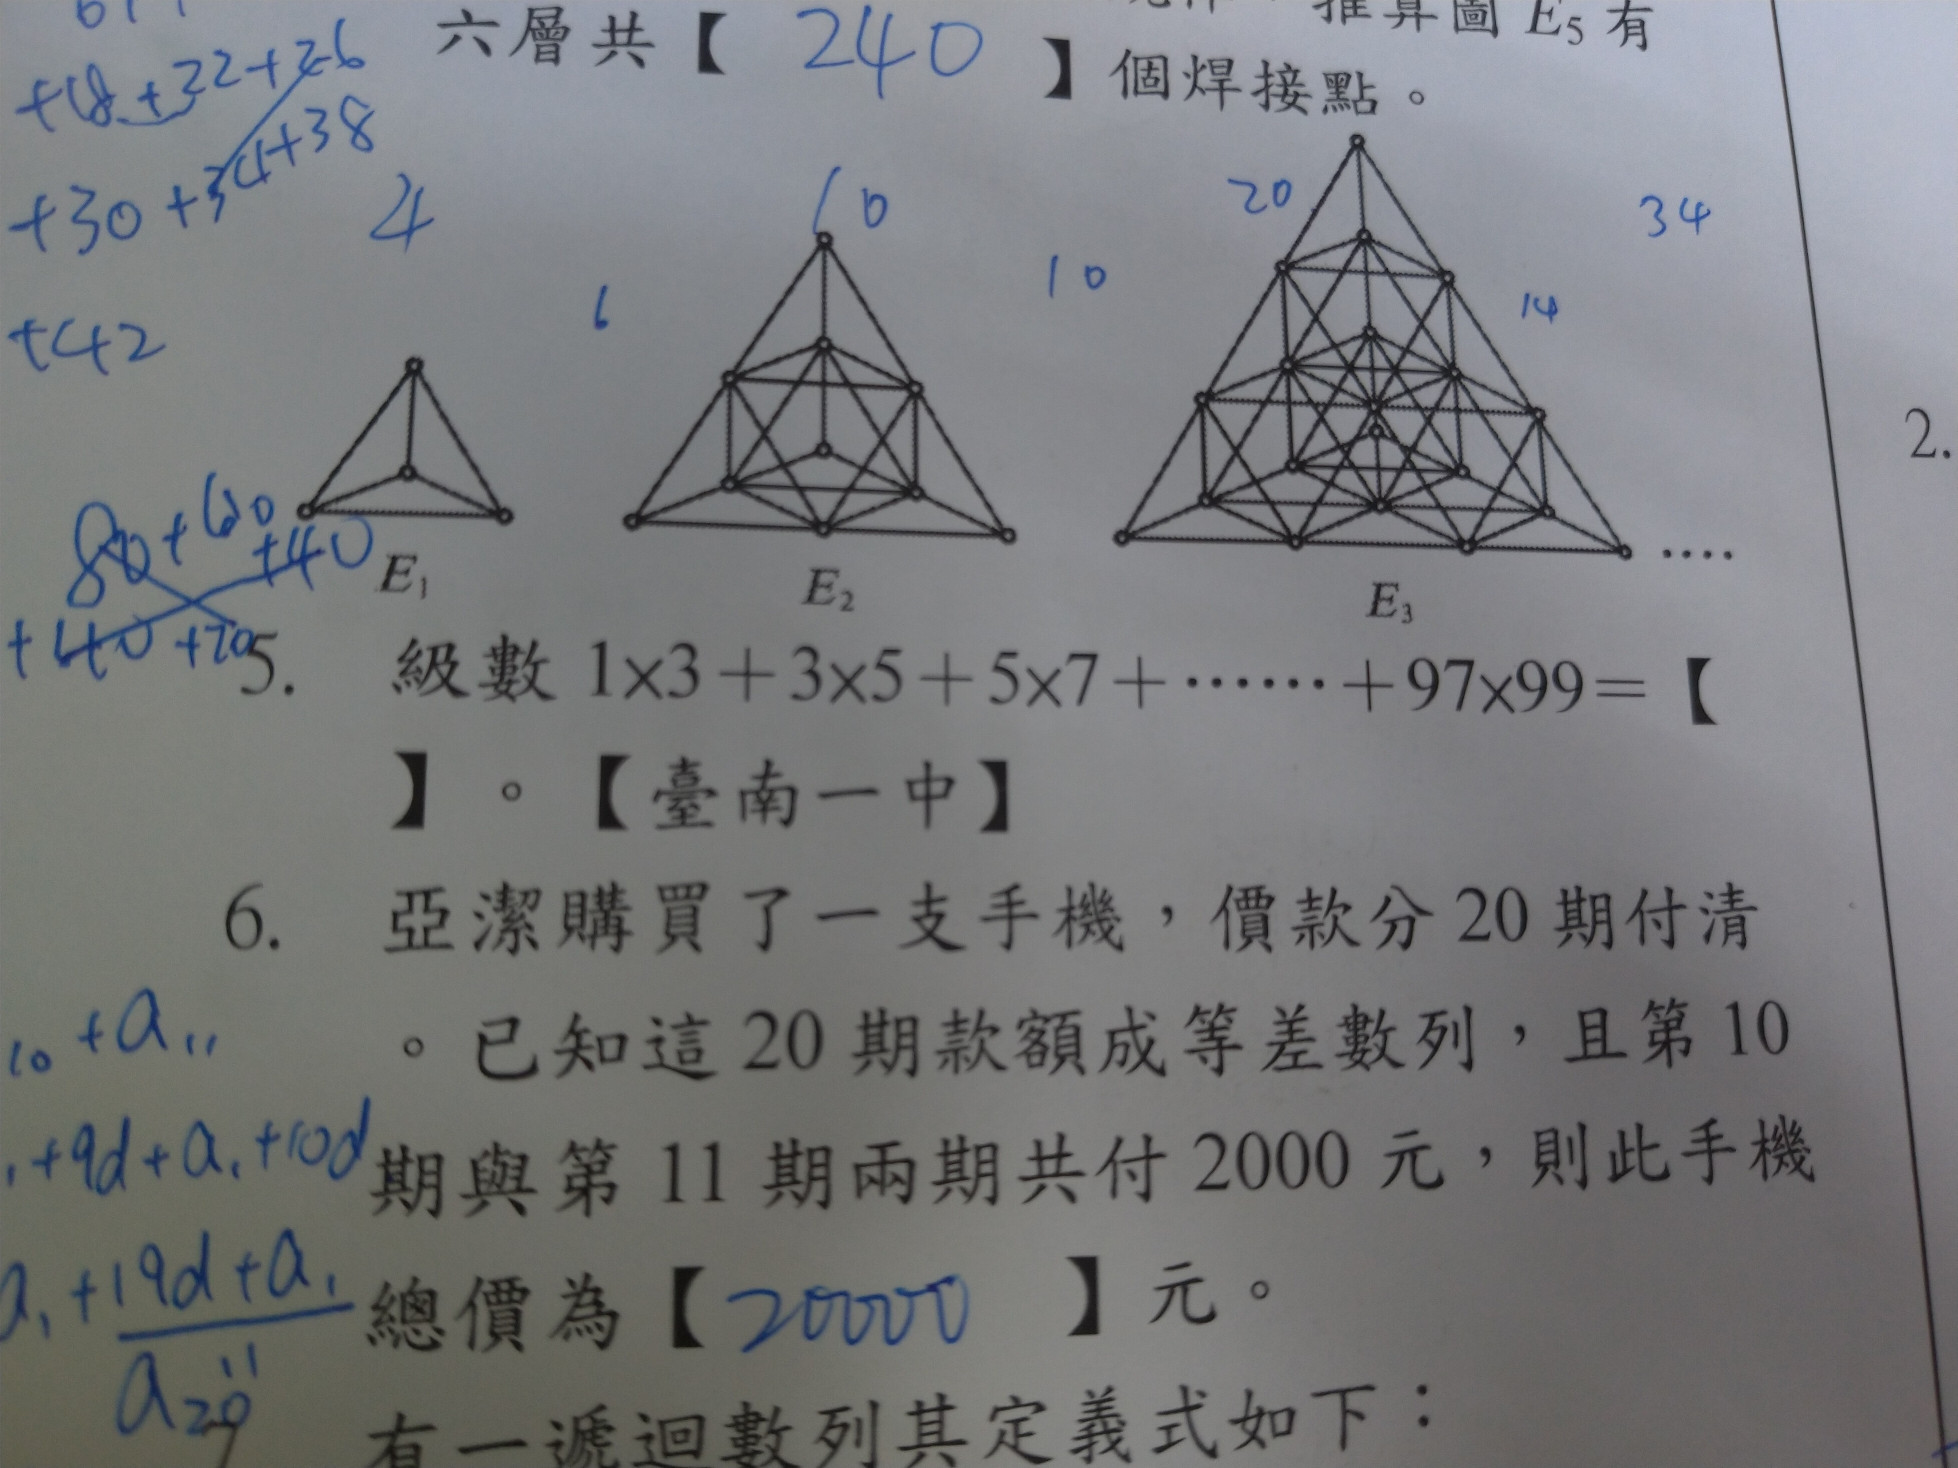 推算圖 E₅ 有
六層共【 240 】個焊接點。
+18+32+26
+30+34+38
+42
4
6
10
10
20
14
34
80+60
+40
+40+20
E₁
E₂
E₃
....
5. 級數 1×3＋3×5＋5×7＋……＋97×99＝【
】。【臺南一中】
6. 亞潔購買了一支手機，價款分 20 期付清
。已知這 20 期款額成等差數列，且第 10
期與第 11 期兩期共付 2000 元，則此手機
總價為【 20000 】元。
有一遞迴數列其定義式如下：
10 +a₁₁
+9d+a₁+10d
a₁+19d+a₁
a₂₀
2.